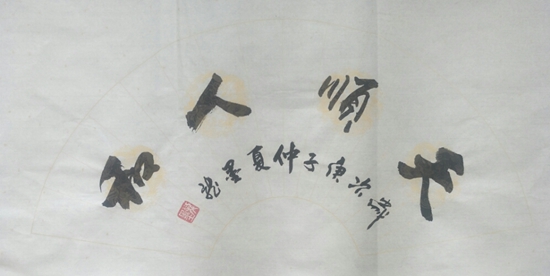 天順人和
歲次庚子仲夏墨